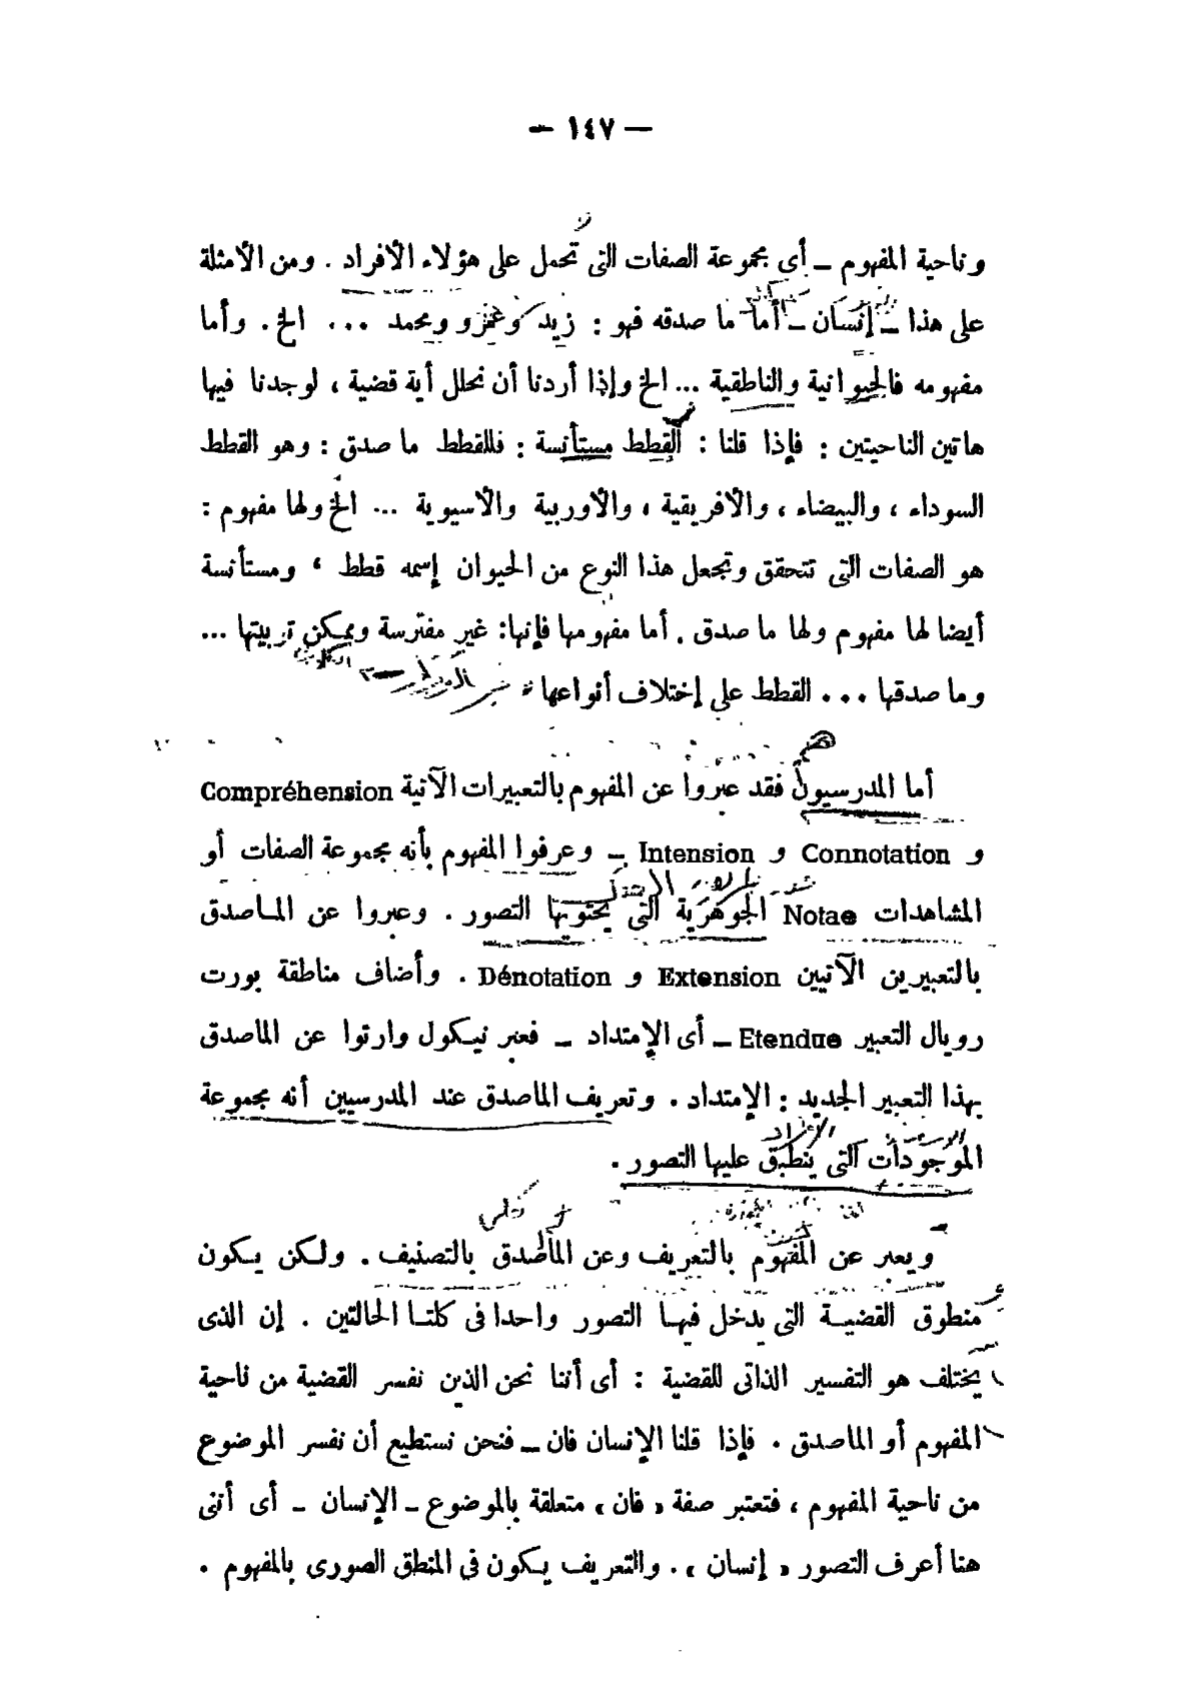 — ١٤٧ —
وناحية المفهوم – أى مجموعة الصفات التى تحمل على هؤلاء الأفراد . ومن الأمثلة
على هذا – إنسان – أما ما صدقه فهو : زيد وعمرو ومحمد ... الخ . وأما
مفهومه فالحيوانية والناطقية ... الخ وإذا أردنا أن نحلل أية قضية ، لوجدنا فيها
هاتين الناحيتين : فإذا قلنا : القطط مستأنسة : فللقطط ما صدق : وهو القطط
السوداء ، والبيضاء ، والأفريقية ، والأوربية والأسيوية ... الخ ولها مفهوم :
هو الصفات التى تتحقق وتجعل هذا النوع من الحيوان إسمه قطط ، ومستأنسة
أيضا لها مفهوم ولها ما صدق . أما مفهومها فإنها : غير مفترسة ويمكن تربيتها ...
وما صدقها ... القطط على إختلاف أنواعها
هم
أما المدرسيون فقد عبروا عن المفهوم بالتعبيرات الآتية Compréhension
و Connotation و Intension – وعرفوا المفهوم بأنه مجموعة الصفات أو
المشاهدات Notae الجوهرية التى يحتويها التصور . وعبروا عن الماصدق
بالتعبيرين الآتيين Extension و Dénotation . وأضاف مناطقة بورت
رويال التعبير Etendue – أى الإمتداد – فعبر نيكول وارتوا عن الماصدق
بهذا التعبير الجديد : الإمتداد . وتعريف الماصدق عند المدرسيين أنه مجموعة
الأفراد
الموجودات التى ينطبق عليها التصور .
ويعبر عن المفهوم بالتعريف وعن الماصدق بالتصنيف . ولكن يكون
منطوق القضية التى يدخل فيها التصور واحدا فى كلتا الحالتين . إن الذى
يختلف هو التفسير الذاتى للقضية : أى أننا نحن الذين نفسر القضية من ناحية
المفهوم أو الماصدق . فإذا قلنا الإنسان فان – فنحن نستطيع أن نفسر الموضوع
من ناحية المفهوم ، فتعتبر صفة « فان » متعلقة بالموضوع – الإنسان – أى أننى
هنا أعرف التصور « إنسان » . والتعريف يكون فى المنطق الصورى بالمفهوم .